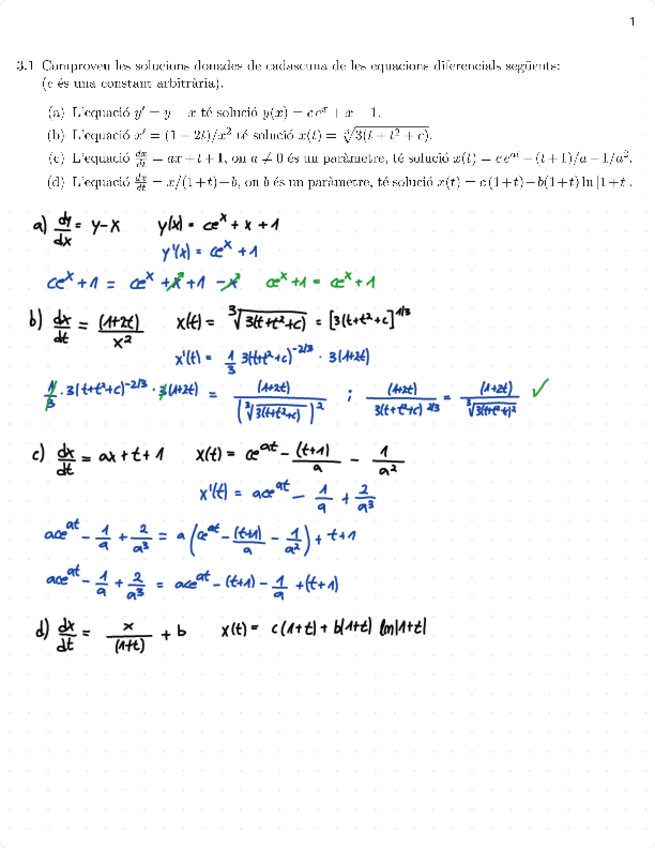 1
3.1 Comproveu les solucions donades de cadascuna de les equacions diferencials següents:
(c és una constant arbitrària).
(a) L'equació y′ = y − x té solució y(x) = c eˣ + x + 1.
(b) L'equació x′ = (1 + 2t)/x² té solució x(t) = ∛(3(t + t² + c)).
(c) L'equació dx/dt = ax + t + 1, on a ≠ 0 és un paràmetre, té solució x(t) = c eᵃᵗ − (t+1)/a − 1/a².
(d) L'equació dx/dt = x/(1+t) + b, on b és un paràmetre, té solució x(t) = c(1+t) + b(1+t) ln |1+t|.
a) dy/dx = y-x y(x) = ceˣ + x + 1
y'(x) = ceˣ + 1
ceˣ + 1 = ceˣ + x + 1 - x ceˣ + 1 = ceˣ + 1
b) dx/dt = (1+2t)/x² x(t) = ∛(3(t+t²+c)) = [3(t+t²+c]^1/3
x'(t) = 1/3 3(t+t²+c)^-2/3 · 3(1+2t)
1/3 · 3(t+t²+c)^-2/3 · 3(1+2t) = (1+2t)/(∛(3(t+t²+c)))² ; (1+2t)/3(t+t²+c)^2/3 = (1+2t)/∛(3(t+t²+c)²) ✓
c) dx/dt = ax + t + 1 x(t) = ceᵃᵗ - (t+1)/a - 1/a²
x'(t) = aceᵃᵗ - 1/a + 2/a³
aceᵃᵗ - 1/a + 2/a³ = a (ceᵃᵗ - (t+1)/a - 1/a²) + t+1
aceᵃᵗ - 1/a + 2/a³ = aceᵃᵗ - (t+1) - 1/a + (t+1)
d) dx/dt = x/(1+t) + b x(t) = c(1+t) + b(1+t) ln|1+t|